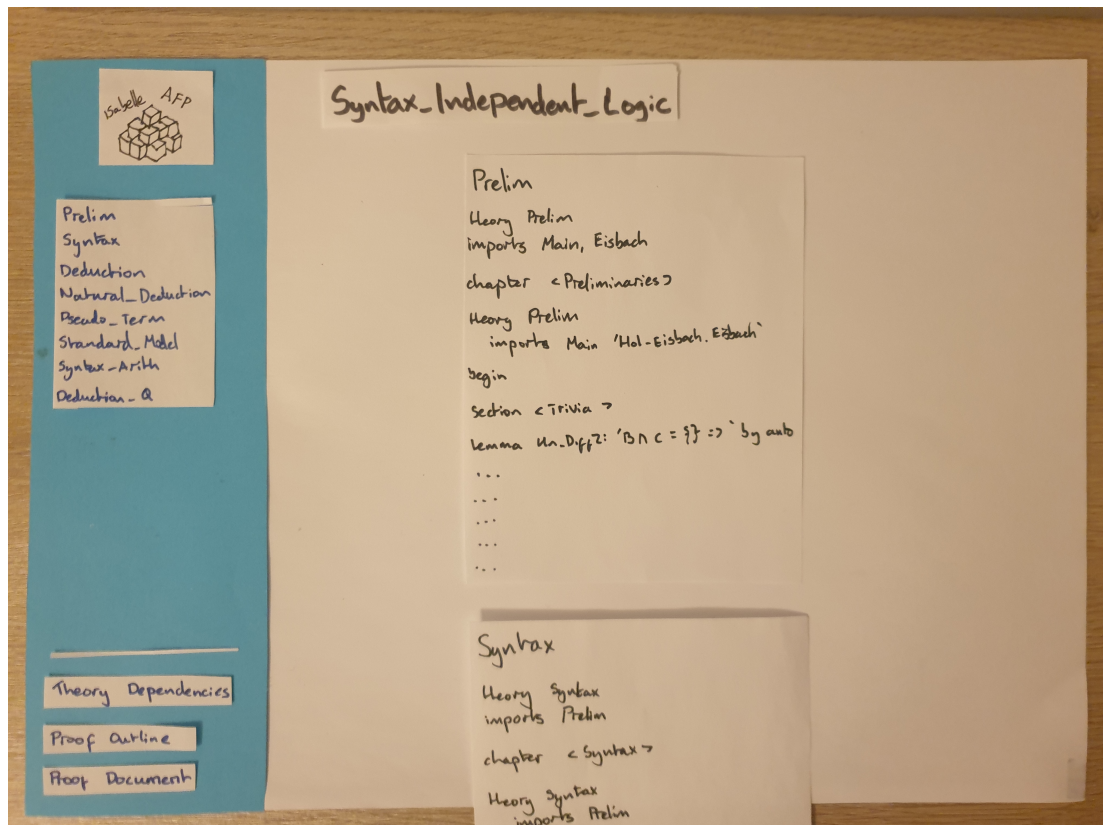 Isabelle AFP
Syntax_Independent_Logic
Prelim
Syntax
Deduction
Natural_Deduction
Pseudo_Term
Standard_Model
Syntax_Arith
Deduction_Q
Theory Dependencies
Proof Outline
Proof Document
Prelim
theory Prelim
imports Main, Eisbach
chapter <Preliminaries>
theory Prelim
imports Main 'Hol-Eisbach.Eisbach`
begin
section <Trivia>
lemma Un_Diff2: 'B ∩ C = {} => ` by auto
...
...
...
...
...
Syntax
theory Syntax
imports Prelim
chapter <Syntax>
theory Syntax
imports Prelim